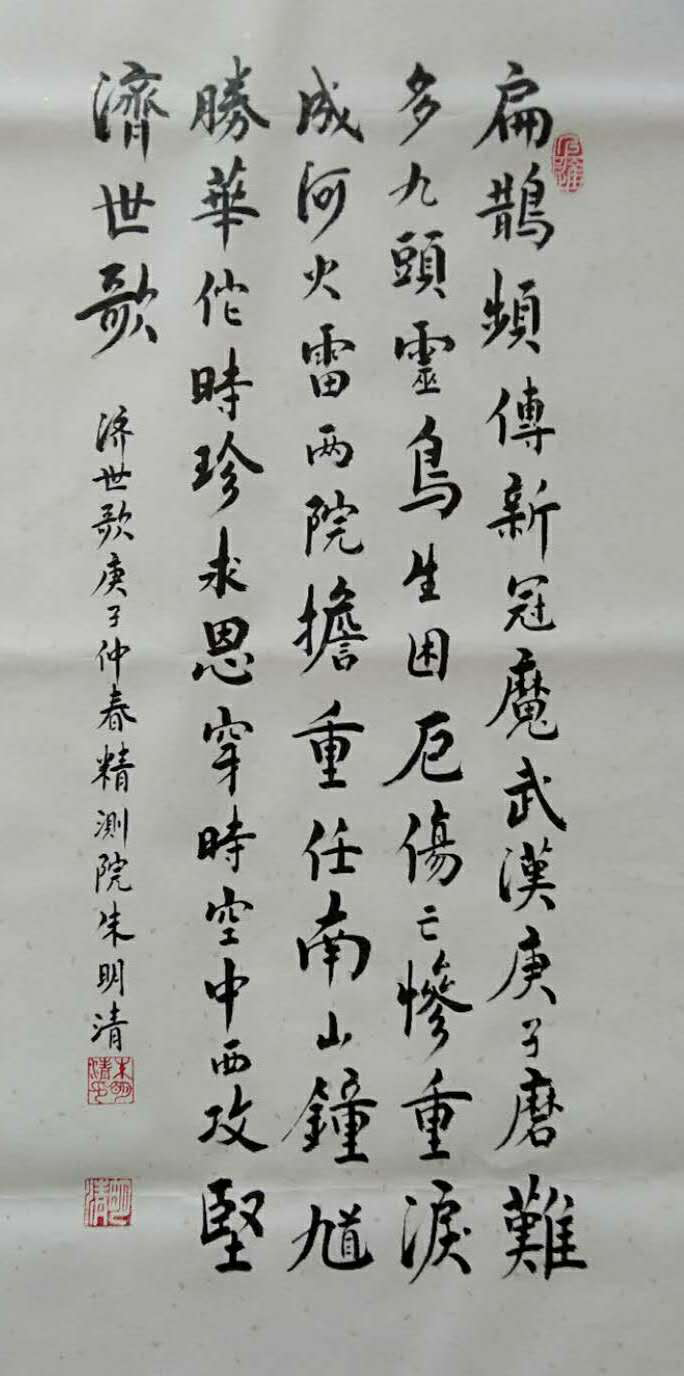 扁鵲頻傳新冠魔武漢庚子磨難
多九頭靈鳥生困厄傷亡慘重淚
成河火雷两院擔重任南山鐘馗
勝華佗時珍求思穿時空中西攻堅
濟世歌
济世歌庚子仲春精测院朱明清
朱明清印